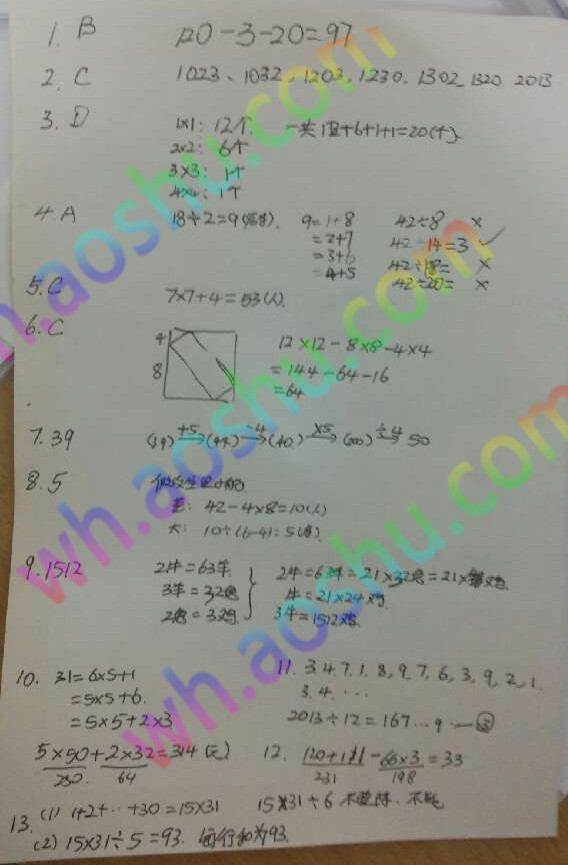 1. B 120-3-20=97
2. C 1023、1032、1203、1230、1302、1320 2013
3. D 1×1: 12个 一共12+6+1+1=20(个)
2×2: 6个
3×3: 1个
4×4: 1个
4. A 18÷2=9 9=1+8 42÷8 ×
=2+7 42÷14=3 ✓
=3+6 42÷18= ×
=4+5 42÷20= ×
5. C 7×7+4=53(人)
6. C 4 12×12-8×8-4×4
8 =144-64-16
=64
7. 39 (39) +5→ (44) -4→ (40) ×5→ (200) ÷4→ 50
8. 5 假设全是小船
差: 42-4×8=10(人)
大: 10÷(6-4)=5
9. 1512 2牛=63羊 2牛=63羊=21×32兔=21×
3羊=32兔 牛=21×24×鸡
2兔=3鸡 3牛=1512鸡
10. 31=6×5+1 11. 3.4.7.1.8.9.7.6.3.9.2.1.
=5×5+6 3.4.…
=5×5+2×3 2013÷12=167…9 — ③
5×50+2×32=314(元) 12. 120+111-66×3=33
250. 64 231 198
13. (1) 1+2+…+30=15×31 15×31÷6 不整除、不能
(2) 15×31÷5=93. 每行和为93.
wh.aoshu.com
wh.aoshu.com
wh.aoshu.com